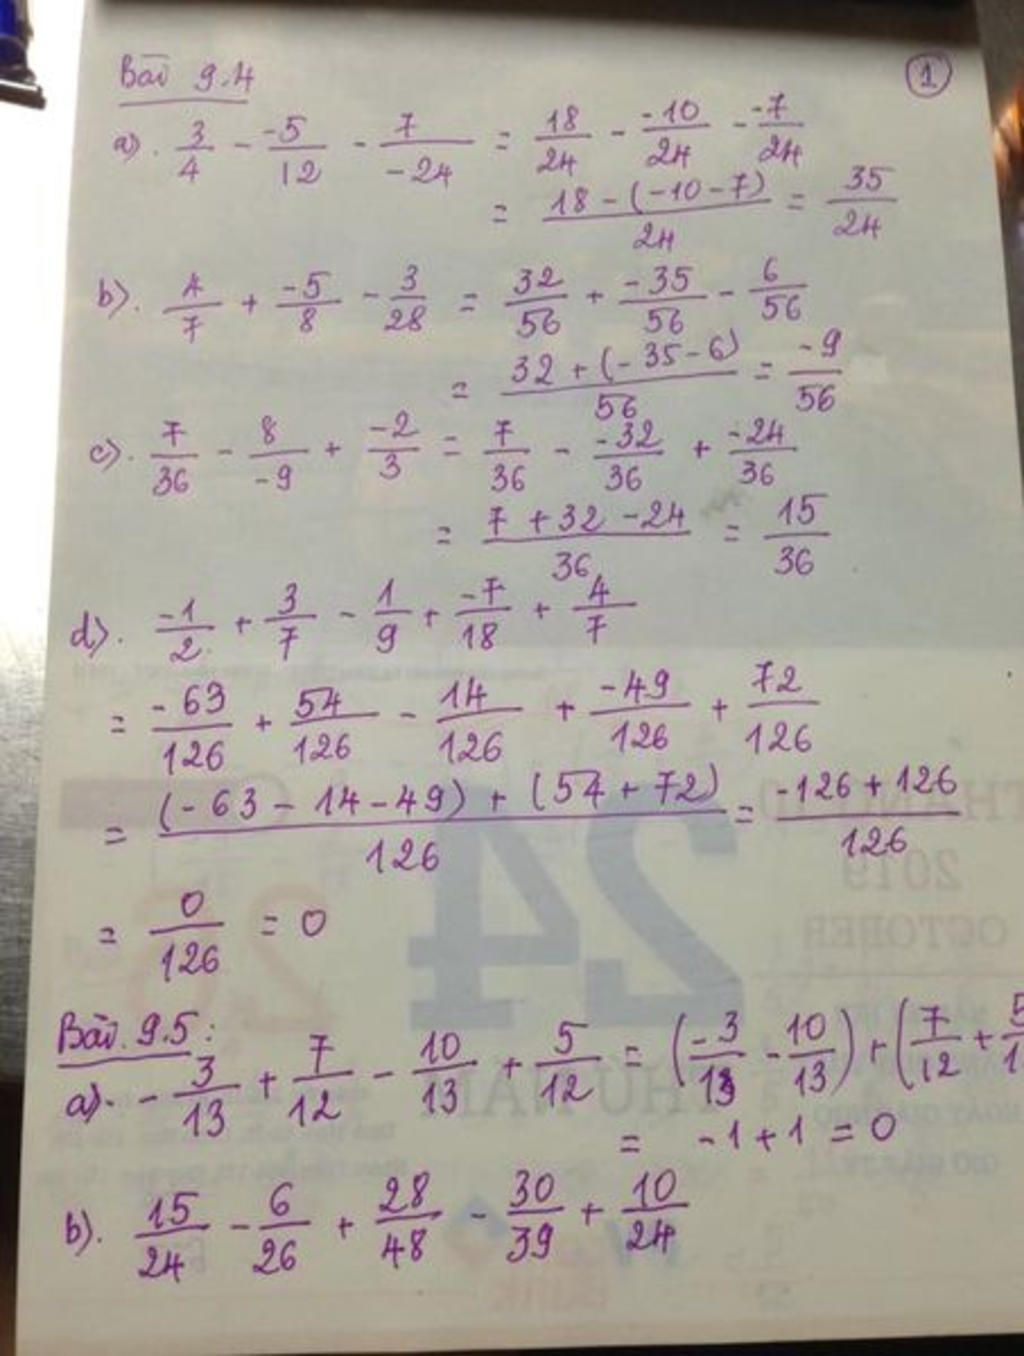 Bài 9.4
1
a). 3/4 - -5/12 - 7/-24 = 18/24 - -10/24 - -7/24
= 18-(-10-7)/24 = 35/24
b). 4/7 + -5/8 - 3/28 = 32/56 + -35/56 - 6/56
= 32+(-35-6)/56 = -9/56
c). 7/36 - 8/-9 + -2/3 = 7/36 - -32/36 + -24/36
= 7+32-24/36 = 15/36
d). -1/2 + 3/7 - 1/9 + -7/18 + 4/7
= -63/126 + 54/126 - 14/126 + -49/126 + 72/126
= (-63-14-49)+(54+72)/126 = -126+126/126
= 0/126 = 0
Bài 9.5:
a). -3/13 + 7/12 - 10/13 + 5/12 = (-3/13 - 10/13) + (7/12 + 5/1
= -1+1=0
b). 15/24 - 6/26 + 28/48 - 30/39 + 10/24
24
2019
OCTOBER